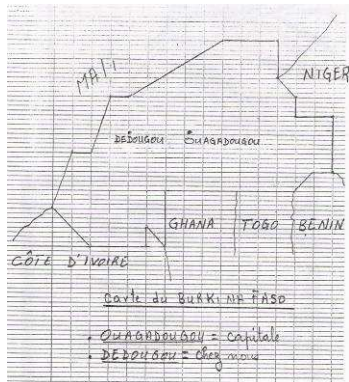 MALI
NIGER
DÉDOUGOU OUAGADOUGOU
GHANA TOGO BENIN
CÔTE D'IVOIRE
Carte du BURKINA FASO
• OUAGADOUGOU = Capitale
• DEDOUGOU = Chez nous